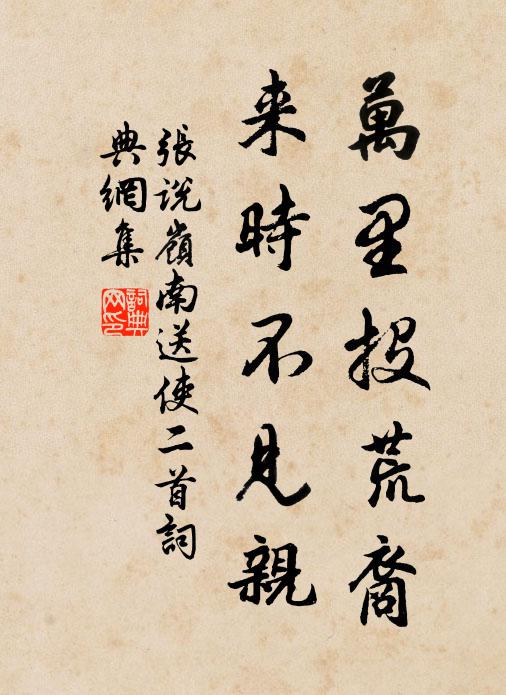 萬里投荒裔
来時不見親
張説嶺南送使二首詞
典網集
詞典
网印